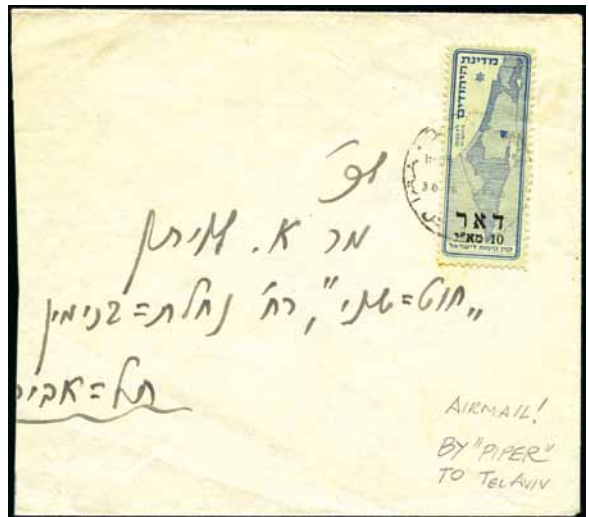 מדינת
היהודים
דאר
10 מא"י
קרן קימת לישראל
לכ'
מר א. איתן
"חוט=שני", רח' נחלת=בנימין
תל=אביב
AIRMAIL!
BY "PIPER"
TO TEL AVIV